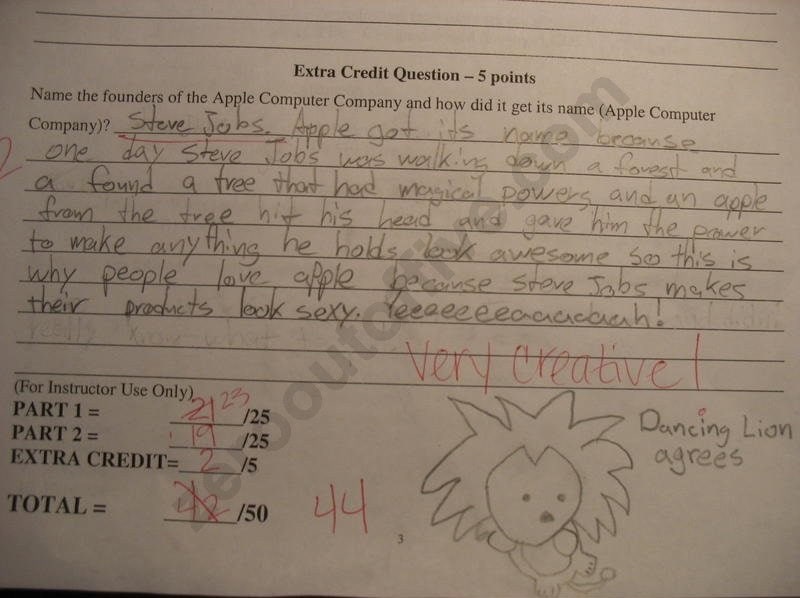 Extra Credit Question – 5 points
Name the founders of the Apple Computer Company and how did it get its name (Apple Computer
Company)? Steve Jobs. Apple got its name because
2 one day Steve Jobs was walking down a forest and
a found a tree that had magical powers, and an apple
from the tree hit his head and gave him the power
to make anything he holds look awesome so this is
why people love apple because Steve Jobs makes
their products look sexy. Yeeeeeeeaaaaaaah!
very creative!
(For Instructor Use Only)
PART 1 = 21 23 /25
PART 2 = 19 /25
EXTRA CREDIT= 2 /5
TOTAL = 42 /50 44
Dancing Lion
agrees
3
zerooutoffive.com